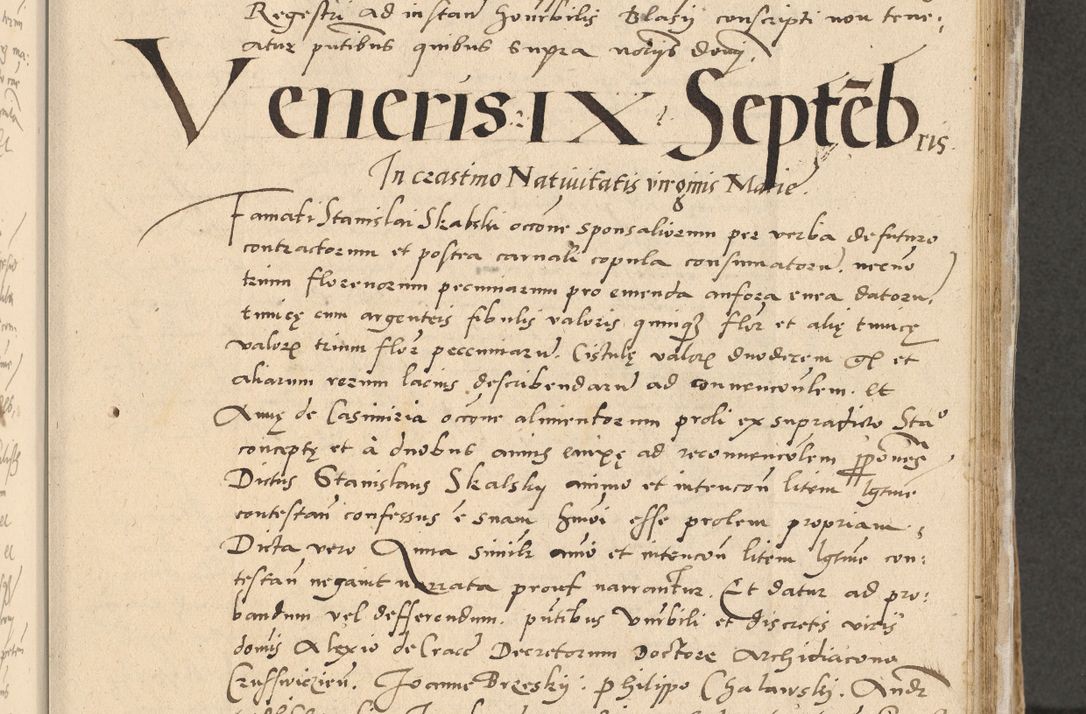 Regestri ad instan honorbilis Blasij conscripti non tene:
atur pntibus quibus supra notrijs domj.
Veneris: IX Septēb ris.
In crastino Natiuitatis virginis Marie.
Famati Stanislai Skalski occōne sponsaliorum per verba de futuro
contractorum et postea carnali copula consumatoru. necnō
trium florenorum pecuniarum pro emenda anfora enea datoru,
tunicę cum argenteis fibulis valoris quinqꝫ flor et alię tunicę
valoris trium flor peccuniarū. Cistulę valoris duodecem gl et
aliarum rerum lacius describendarū ad conuenconlem. Et
Annę de Casimiria occōne alimentorum proli ex supradicto Stao
conceptę et à duobus annis enixę ad reconuencolem pponēs
Dictus Stanislaus Skalskij animo et intencoñ litem lgtime
contestañ confessus ē suam hmōi esse prolem propriam:
Dicta vero Anna simili amō et intencoñ litem lgtime con:
testañ negauit narrata prout narrantur. Et datur ad pro:
bandum vel defferendum. pntibus Vnrbili et discretis viris
domis Alexio de Cracō Decretorum Doctore Archidiacono
Crusswicień. Joanne Brzeskij. Philippo Chalawskij. Andr